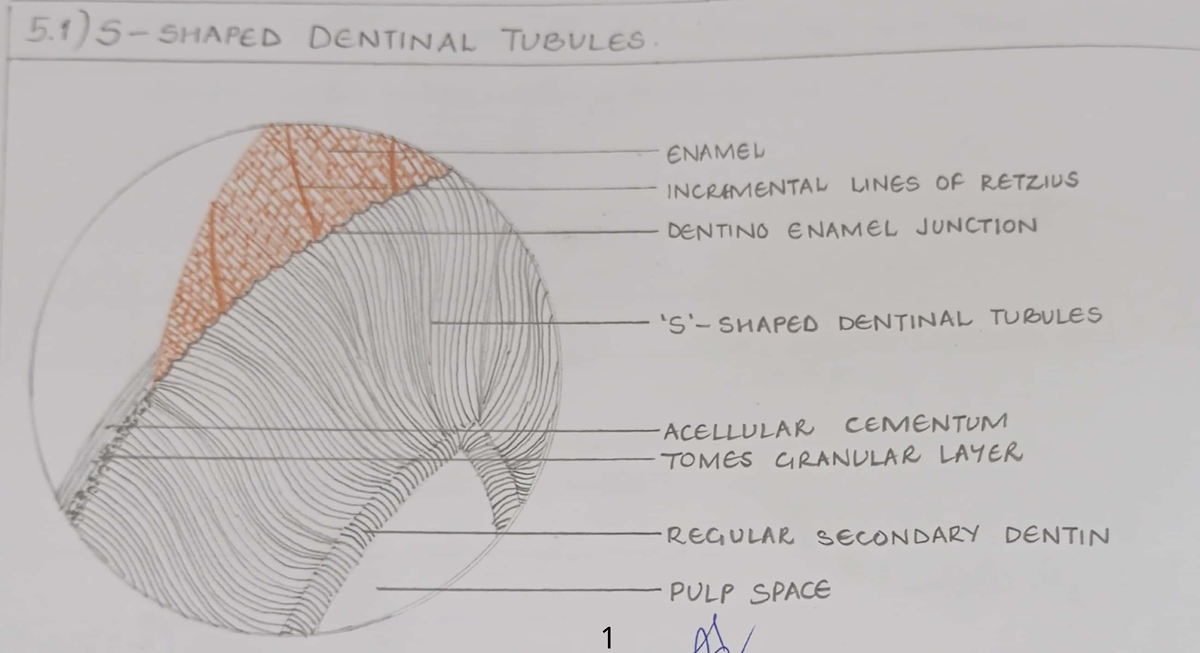 5.1) S-SHAPED DENTINAL TUBULES.
ENAMEL
INCREMENTAL LINES OF RETZIUS
DENTINO ENAMEL JUNCTION
'S'-SHAPED DENTINAL TUBULES
ACELLULAR CEMENTUM
TOMES GRANULAR LAYER
REGULAR SECONDARY DENTIN
PULP SPACE
1